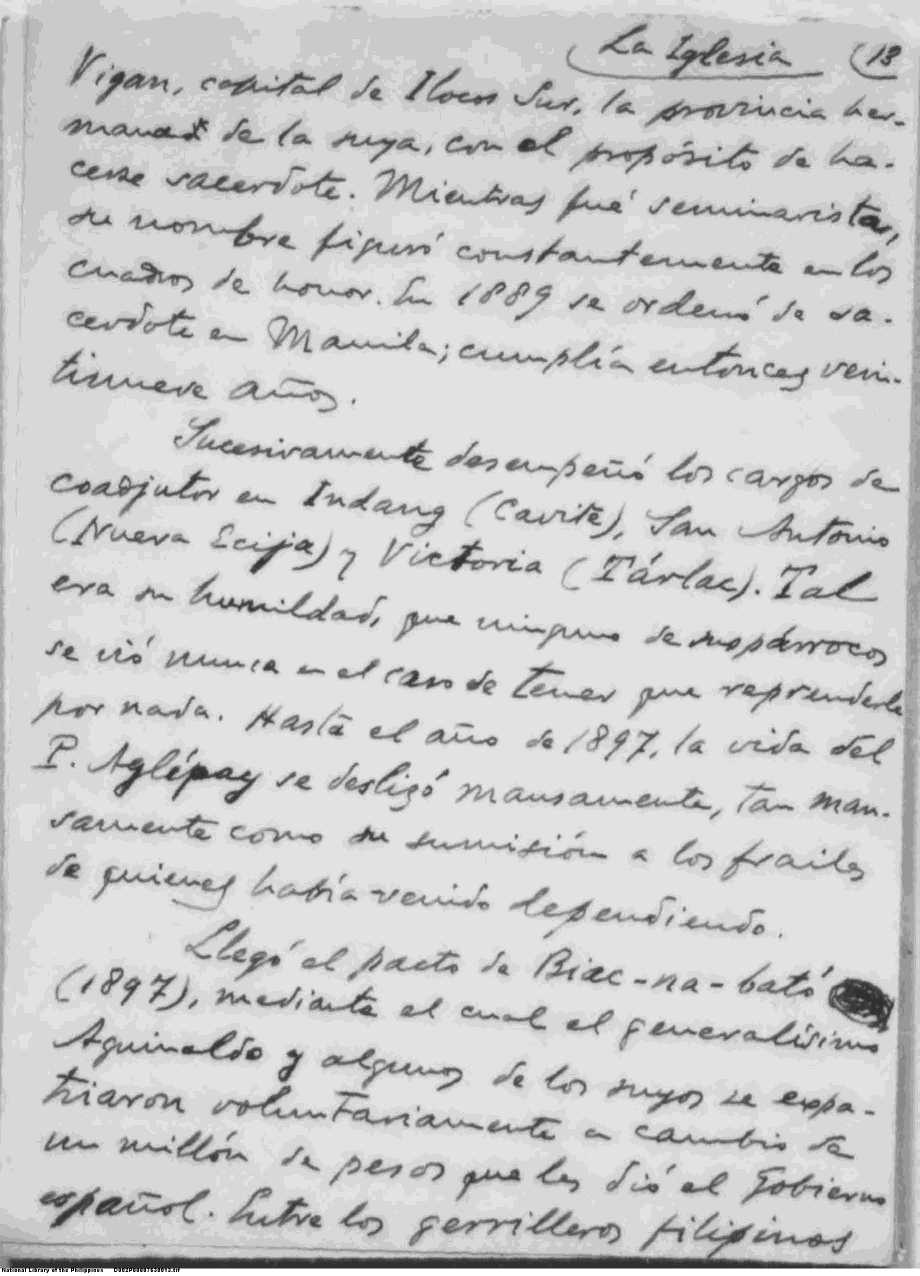 La Iglesia (13
Vigan, capital de Ilocos Sur, la provincia her-
mana de la suya, con el propósito de ha-
cerse sacerdote. Mientras fué seminarista,
su nombre figuró constantemente en los
cuadros de honor. En 1889 se ordenó de sa-
cerdote en Manila; cumplía entonces vein-
tinueve años.
Sucesivamente desempeñó los cargos de
coadjutor en Indang (Cavite), San Antonio
(Nueva Ecija) y Victoria (Tárlac). Tal
era su humildad, que ninguno de sus párrocos
se vió nunca en el caso de tener que reprenderle
por nada. Hasta el año de 1897, la vida del
P. Aglípay se deslizó mansamente, tan man-
samente como su sumisión a los frailes
de quienes había venido dependiendo.
Llegó el pacto de Biac-na-bató
(1897), mediante el cual el generalísimo
Aguinaldo y algunos de los suyos se expa-
triaron voluntariamente a cambio de
un millón de pesos que les dió el Gobierno
español. Entre los gerrilleros filipinos
National Library of the Philippines